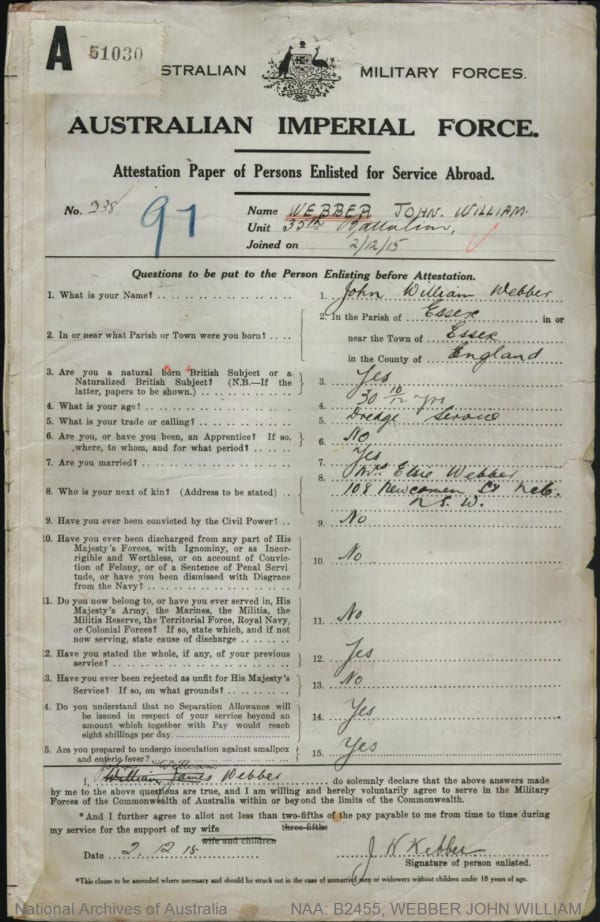 A 51030
STRALIAN MILITARY FORCES.
AUSTRALIAN IMPERIAL FORCE.
Attestation Paper of Persons Enlisted for Service Abroad.
No. 238 Name WEBBER JOHN. WILLIAM.
97 Unit 35th Battalion,
Joined on 2/12/15
Questions to be put to the Person Enlisting before Attestation.
1. What is your Name? 1. John William Webber
2. In or near what Parish or Town were you born? 2. In the Parish of Essex in or
near the Town of Essex
in the County of England
3. Are you a natural born British Subject or a
Naturalized British Subject? (N.B.—If the
latter, papers to be shown.) 3. Yes
4. What is your age? 4. 30 10/12 yrs
5. What is your trade or calling? 5. Dredge Service
6. Are you, or have you been, an Apprentice? If so,
where, to whom, and for what period? 6. No
7. Are you married? 7. Yes
8. Who is your next of kin? (Address to be stated) 8. Mrs Elsie Webber
108 Newcomen St Nctle.
N.S.W.
9. Have you ever been convicted by the Civil Power? 9. No
10. Have you ever been discharged from any part of His
Majesty's Forces, with Ignominy, or as Incor-
rigible and Worthless, or on account of Convic-
tion of Felony, or of a Sentence of Penal Servi
tude, or have you been dismissed with Disgrace
from the Navy? 10. No
11. Do you now belong to, or have you ever served in, His
Majesty's Army, the Marines, the Militia, the
Militia Reserve, the Territorial Force, Royal Navy,
or Colonial Forces? If so, state which, and if not
now serving, state cause of discharge 11. No
2. Have you stated the whole, if any, of your previous
service? 12. Yes
3. Have you ever been rejected as unfit for His Majesty's
Service? If so, on what grounds? 13. No
4. Do you understand that no Separation Allowance will
be issued in respect of your service beyond an
amount which together with Pay would reach
eight shillings per day. 14. Yes
5. Are you prepared to undergo inoculation against smallpox
and enteric fever? 15. Yes
John William
I, William James Webber do solemnly declare that the above answers made
by me to the above questions are true, and I am willing and hereby voluntarily agree to serve in the Military
Forces of the Commonwealth of Australia within or beyond the limits of the Commonwealth.
*And I further agree to allot not less than two-fifths of the pay payable to me from time to time during
three-fifths
my service for the support of my wife
wife and children
Date 2.12.15 J W Webber
Signature of person enlisted.
*This clause to be amended where necessary and should be struck out in the case of unmarried men or widowers without children under 16 years of age.
National Archives of Australia NAA: B2455, WEBBER JOHN WILLIAM